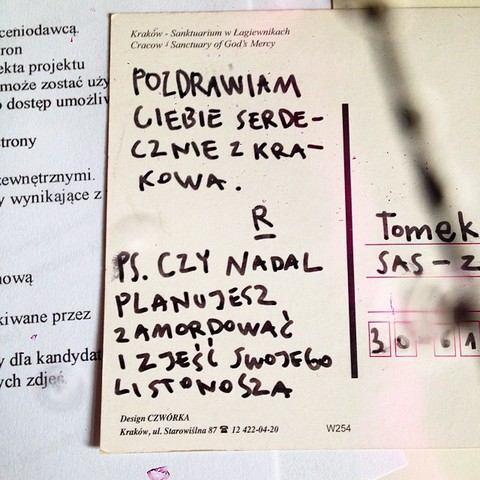 ceniodawcą.
ron
ekta projektu
może zostać uży
o dostęp umożliv
trony
zewnętrznymi.
y wynikające z
nową
kiwane przez
y dla kandydat
ych zdjęć
Kraków - Sanktuarium w Łagiewnikach
Cracow - Sanctuary of God's Mercy
POZDRAWIAM
CIEBIE SERDE-
CZNIE Z KRA-
KOWA.
R
PS. CZY NADAL
PLANUJESZ
ZAMORDOWAĆ
I ZJEŚĆ SWOJEGO
LISTONOSZA
Design CZWÓRKA
Kraków, ul. Starowiślna 87 ☎ 12 422-04-20
W254
Tomek
SAS - Z
30 61